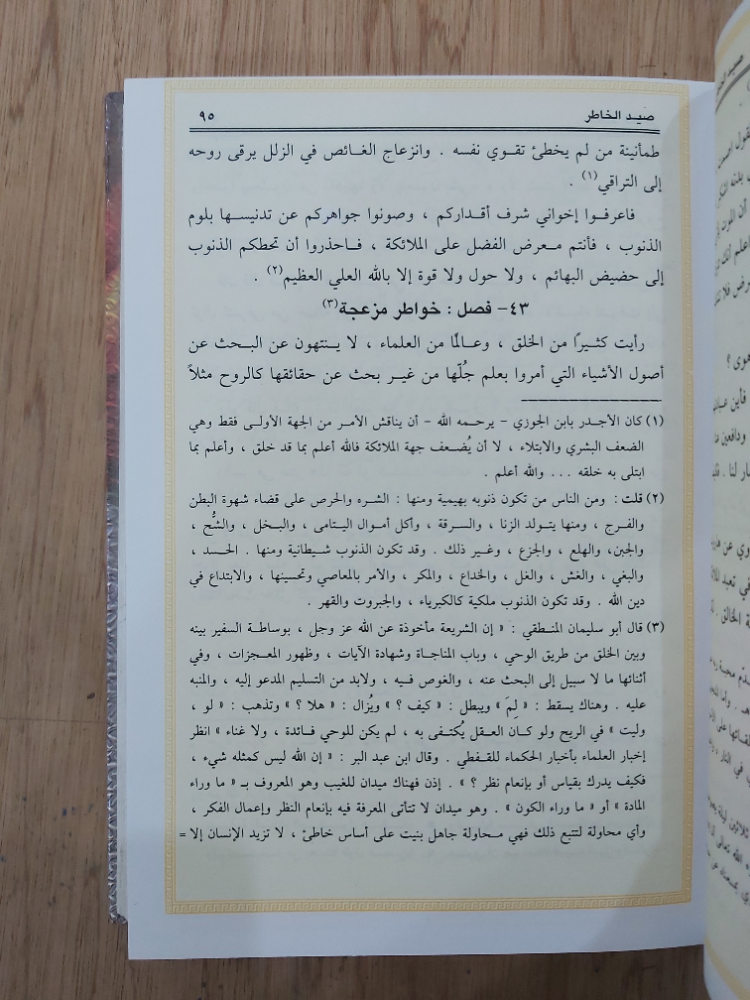 صيد الخاطر ٩٥
طمأنينة من لم يخطئ تقوي نفسه . وانزعاج الغائص في الزلل يرقى روحه
إلى التراقي(١) .
فاعرفوا إخواني شرف أقداركم ، وصونوا جواهركم عن تدنيسها بلوم
الذنوب ، فأنتم معرض الفضل على الملائكة ، فاحذروا أن تحطكم الذنوب
إلى حضيض البهائم ، ولا حول ولا قوة إلا بالله العلي العظيم(٢) .
٤٣- فصل : خواطر مزعجة(٣)
رأيت كثيرًا من الخلق ، وعالمًا من العلماء ، لا ينتهون عن البحث عن
أصول الأشياء التي أمروا بعلم جُلّها من غير بحث عن حقائقها كالروح مثلاً
(١) كان الأجدر بابن الجوزي - يرحمه الله - أن يناقش الأمر من الجهة الأولى فقط وهي
الضعف البشري والابتلاء ، لا أن يُضعف جهة الملائكة فالله أعلم بما قد خلق ، وأعلم بما
ابتلى به خلقه ... والله أعلم .
(٢) قلت : ومن الناس من تكون ذنوبه بهيمية ومنها : الشره والحرص على قضاء شهوة البطن
والفرج ، ومنها يتولد الزنا ، والسرقة ، وأكل أموال اليتامى ، والبخل ، والشُّح ،
والجبن، والهلع ، والجزع ، وغير ذلك . وقد تكون الذنوب شيطانية ومنها . الحسد ،
والبغي ، والغش ، والغل ، والخداع ، والمكر ، والأمر بالمعاصي وتحسينها ، والابتداع في
دين الله . وقد تكون الذنوب ملكية كالكبرياء ، والجبروت والقهر .
(٣) قال أبو سليمان المنطقي : « إن الشريعة مأخوذة عن الله عز وجل ، بوساطة السفير بينه
وبين الخلق من طريق الوحي ، وباب المناجاة وشهادة الآيات ، وظهور المعجزات ، وفي
أثنائها ما لا سبيل إلى البحث عنه ، والغوص فيه ، ولابد من التسليم المدعو إليه ، والمنبه
عليه . وهناك يسقط : « لِمَ » ويبطل : « كيف ؟ » ويُزال : « هلا ؟ » وتذهب : « لو ،
وليت » في الريح ولو كان العقل يُكتفى به ، لم يكن للوحي فائدة ، ولا غناء » انظر
إخبار العلماء بأخبار الحكماء للقفطي . وقال ابن عبد البر : « إن الله ليس كمثله شيء ،
فكيف يدرك بقياس أو بإنعام نظر ؟ » . إذن فهناك ميدان للغيب وهو المعروف بـ « ما وراء
المادة » أو « ما وراء الكون » . وهو ميدان لا تتأتى المعرفة فيه بإنعام النظر وإعمال الفكر ،
وأي محاولة لتتبع ذلك فهي محاولة جاهل بنيت على أساس خاطئ ، لا تزيد الإنسان إلا =